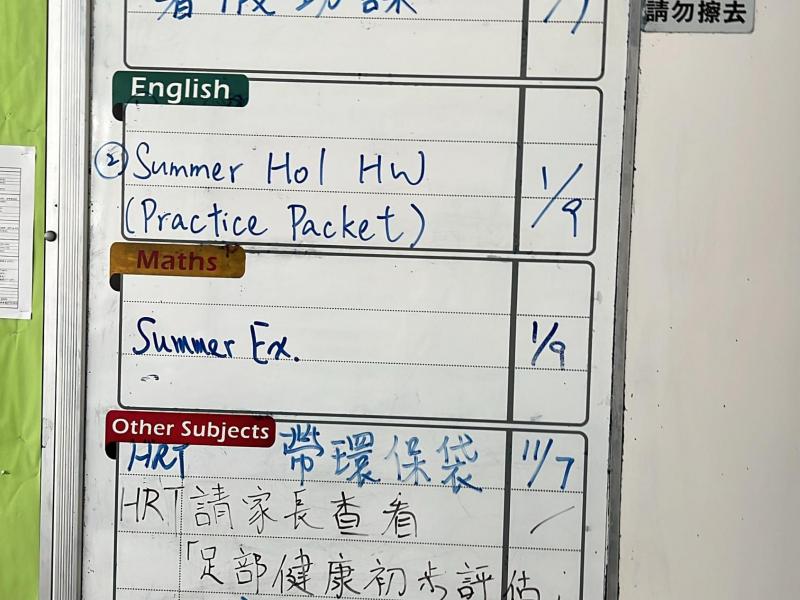 暑假功課 1/9
請勿擦去
English
② Summer Hol HW
(Practice Packet) 1/9
Maths
Summer Ex. 1/9
Other Subjects
HRT 帶環保袋 11/7
HRT 請家長查看 /
「足部健康初步評估